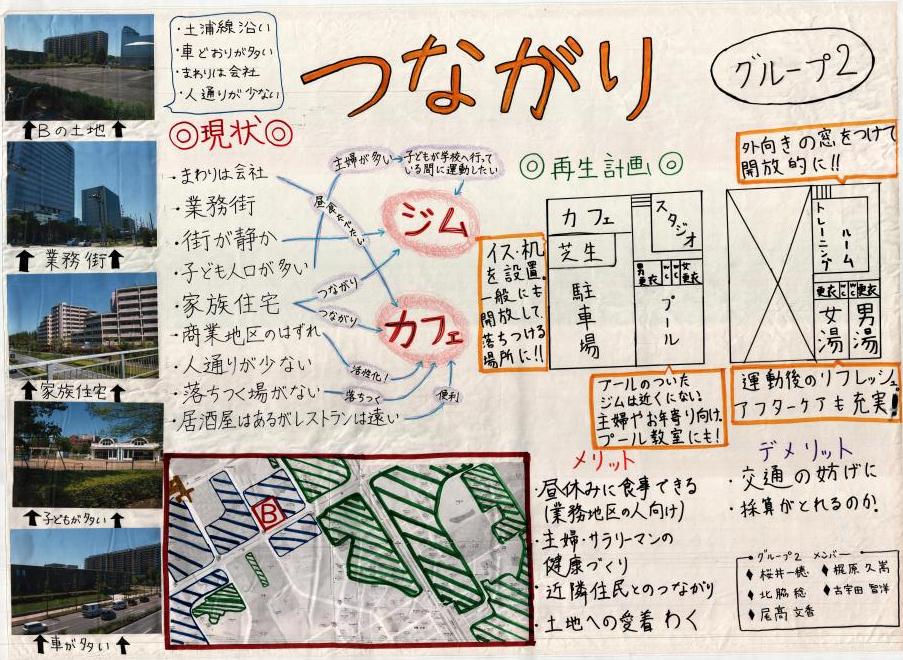 ・土浦線沿い
・車どおりが多い
・まわりは会社
・人通りが少ない
つながり
グループ2
⬆Bの土地⬆
⬆業務街⬆
⬆家族住宅⬆
⬆子どもが多い⬆
⬆車が多い⬆
◎現状◎
・まわりは会社
・業務街
・街が静か
・子ども人口が多い
・家族住宅
・商業地区のはずれ
・人通りが少ない
・落ちつく場がない
・居酒屋はあるがレストランは遠い
主婦が多い
子どもが学校へ行って
いる間に運動したい
昼食をたべたい
つながり
つながり
活性化!
落ちつく
便利
ジム
カフェ
B
◎再生計画◎
カフェ
芝生
駐車場
スタジオ
男更衣
WC
WC
女更衣
プール
イス・机
を設置。
一般にも
開放して、
落ちつける
場所に!!
プールのついた
ジムは近くにない!
主婦やお年寄り向け、
プール教室にも!
外向きの窓をつけて
開放的に!!
トレーニング
ルーム
更衣
WC
WC
更衣
女湯
男湯
運動後のリフレッシュ。
アフターケアも充実!
メリット
・昼休みに食事できる
(業務地区の人向け)
・主婦・サラリーマンの
健康づくり
・近隣住民とのつながり
・土地への受着わく
デメリット
・交通の妨げに
・採算がとれるのか
グループ2 メンバー
♦桜井一穂
♦梶原久嵩
♦北脇稔
♦古宇田智洋
♦尾高文香